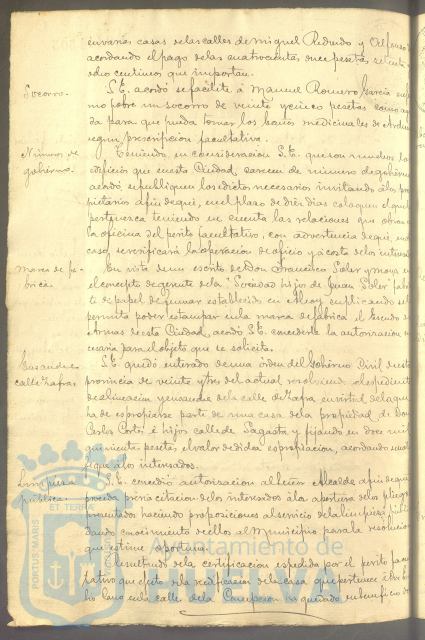 en varias casas de las calles de Miguel Redondo y Alfonso
acordando el pago de las cuatrocientas once pesetas setenta y
ocho centimos que importan.
Socorro.
S.E. acordó se facilite á Manuel Romero García enfer
mo pobre un socorro de veinte y cinco pesetas como ayu
da para que pueda tomar los baños medicinales de
segun prescripcion facultativa.
Número de
gobierno.
Teniendo en consideracion S.E. que son muchos los
edificios que en esta Ciudad, carecen de número de gobierno
acordó, se publiquen los edictos necesarios invitando á los pro
pietarios a fin de que, en el plazo de diez dias coloquen el que les
pertenezca teniendo en cuenta las relaciones que obran en
la oficina del perito facultativo, con advertencia de que, en otro
caso, se verificará la operacion de oficio y a costa de los interesados
Marca de fá-
brica.
En vista de un escrito de Don Francisco Soler y Moya en
el concepto de gerente de la "Sociedad hijos de Juan Soler" fabri
cante de papel de fumar establecido en Alcoy suplicando se le
permita poder estampar en la marca de fábrica el Escudo de
Armas de esta Ciudad, acordó S.E. concederle la autorizacion ne
cesaria para el objeto que se solicita.
Ensanche
calle Zafra.
S.E. quedó enterado de una órden del Gobierno Civil de esta
provincia de veinte y tres del actual resolviendo el espediente
de alineacion y ensanche de la calle de Zafra en virtud de la que
ha de espropiarse parte de una casa de la propiedad de Don
Carlos Cortés é hijos calle de Sagasta y fijando en doce mil
quinientas pesetas el valor de dicha espropiacion, acordando
que á los interesados.
Limpieza
pública
S.E. concedió autorizacion al Señor Alcalde a fin de que
proceda previa citacion de los interesados á la abertura de los pliegos
presentados haciendo proposiciones al servicio de la limpieza pública
dando conocimiento de ellos al Municipio para la resolucion
que estime oportuna.
Resultando de la certificacion espedida por el perito facul
tativo que ejecutó la reedificacion de la casa que pertenece á
en la calle de la Concepcion ha quedado en beneficio de
PORTUS MARIS
ET TERRAE
Ayuntamiento de
HUELVA